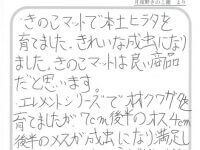 月夜野きのこ園 より
きのこマットで本土ヒラタを
育てました。きれいな成虫になり
ました。きのこマットは良い商品
だと思います。
エレメントシリーズでオオクワガタを
育てましたが7cm後半のオス4cm
後半のメスが成虫になり満足し